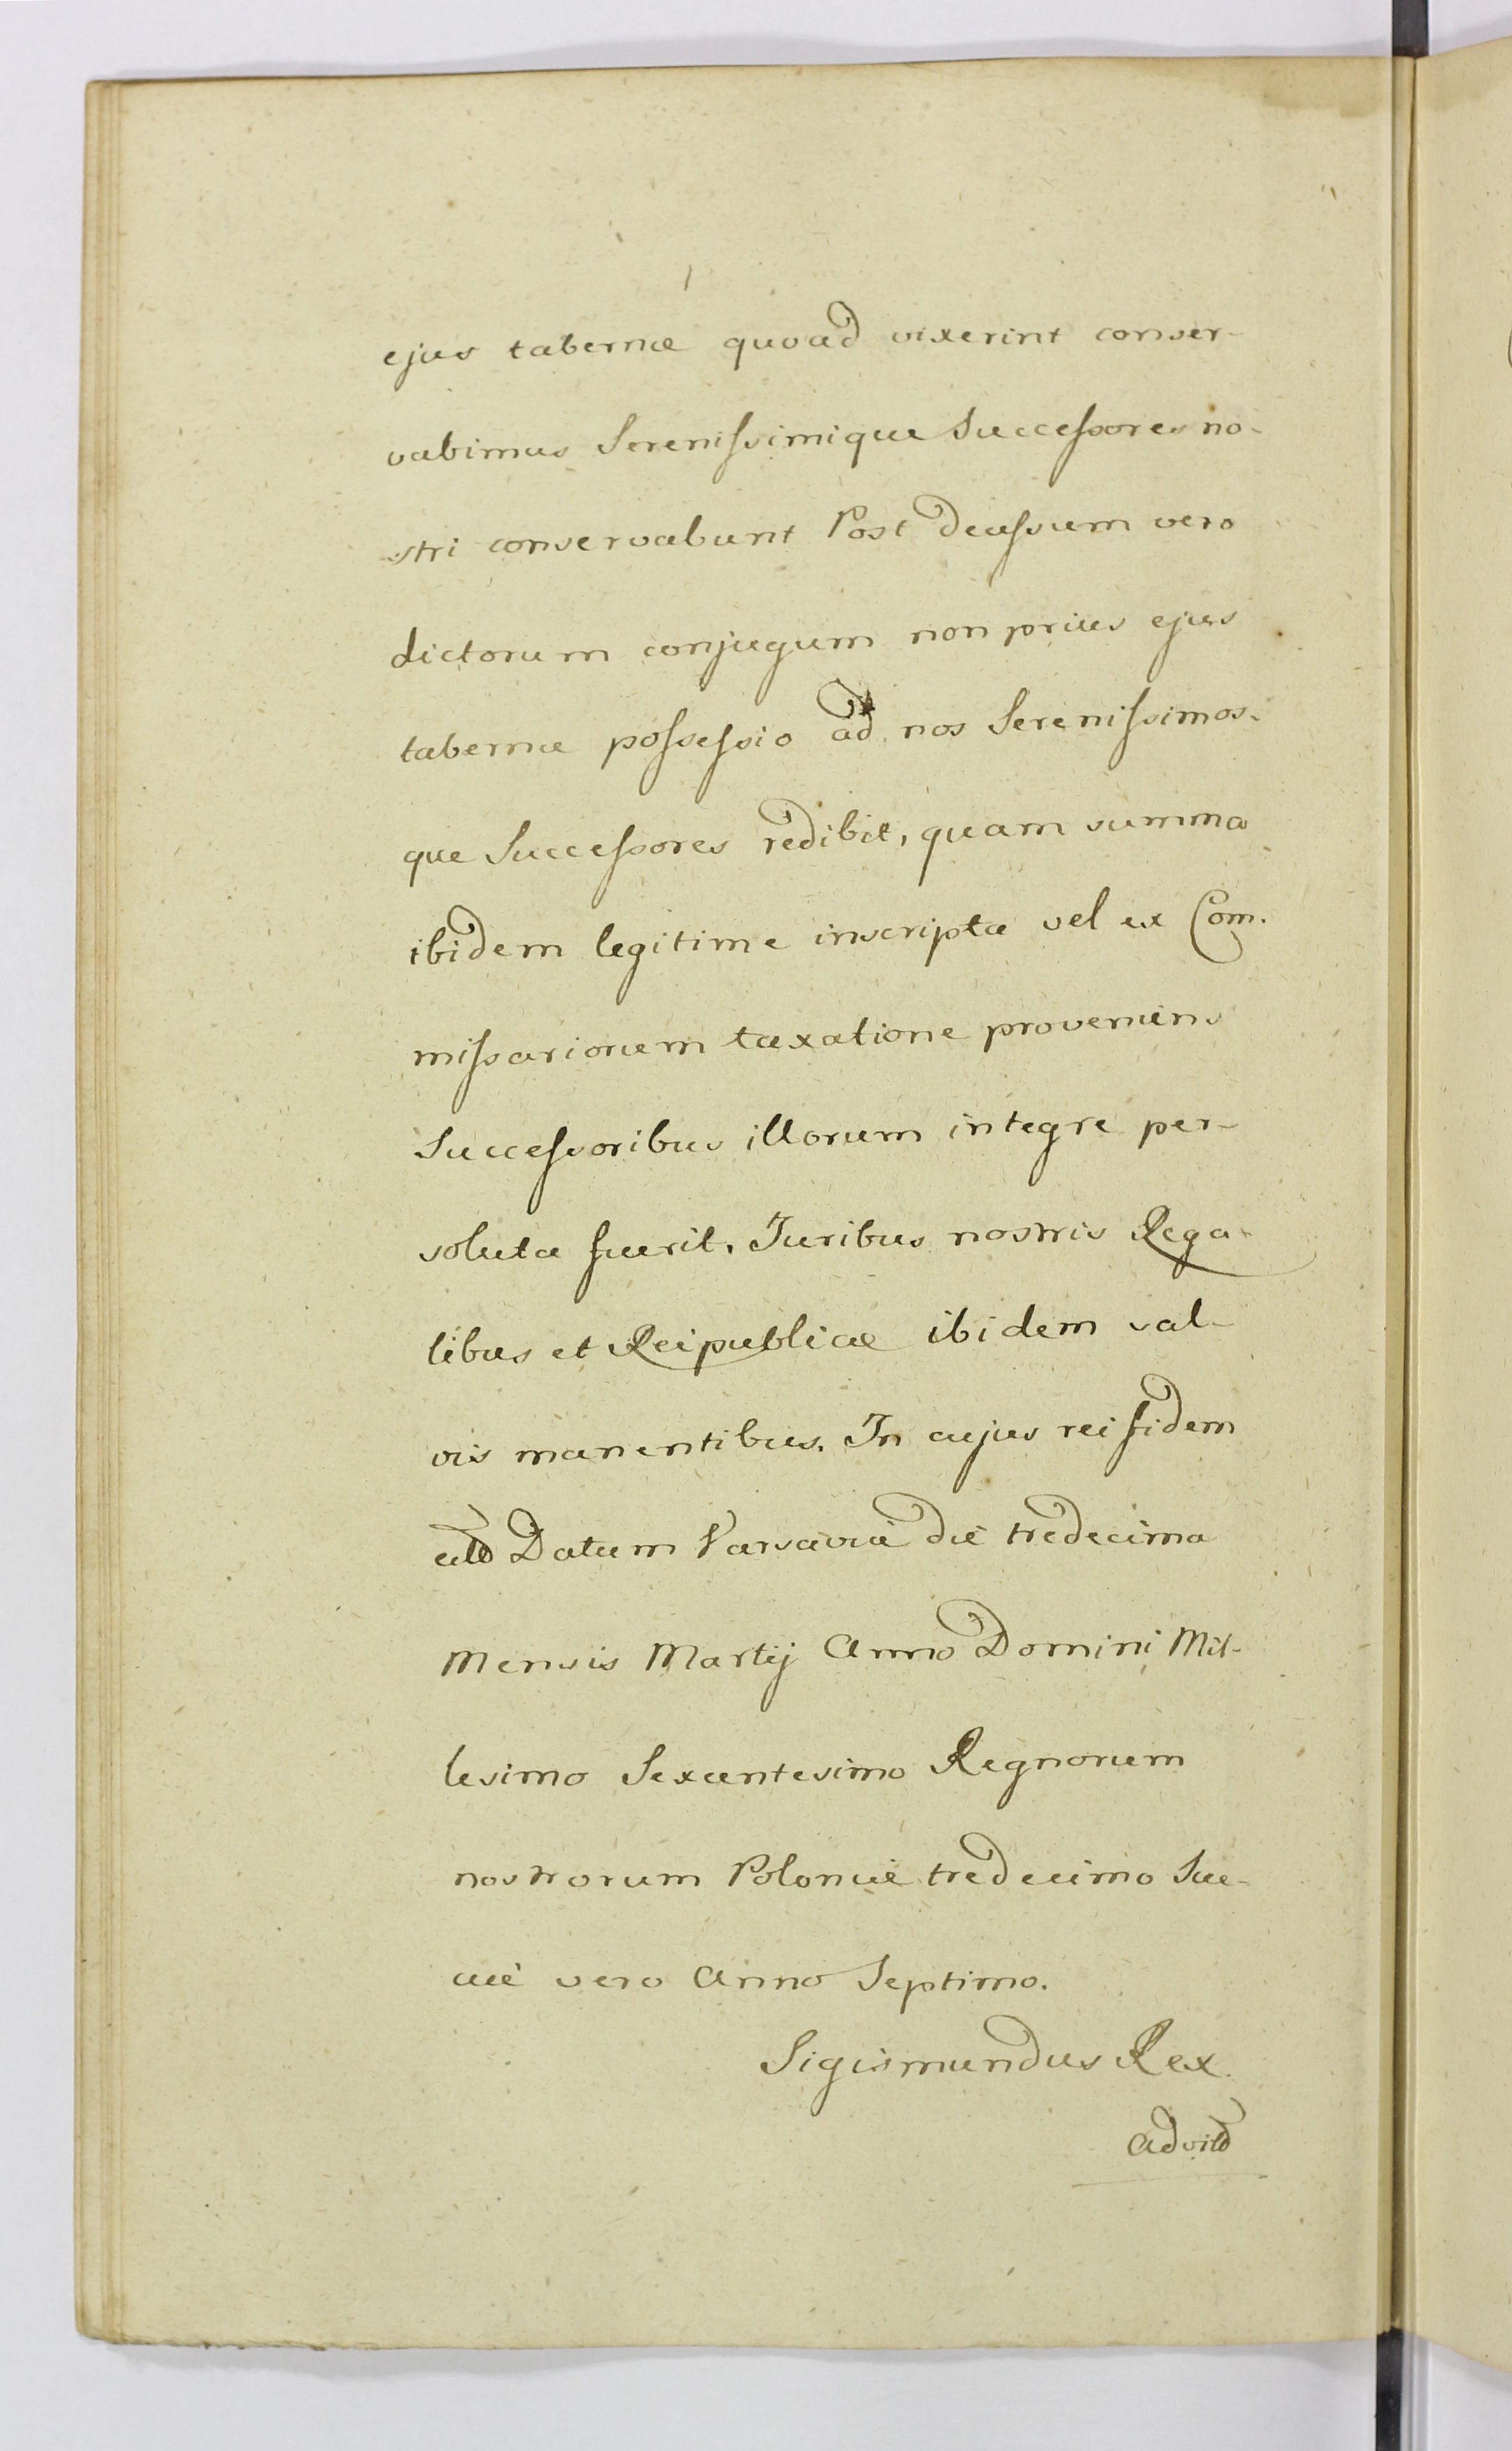 ejus tabernæ quoad vixerint conser-
vabimus Serenissimique Successores no-
stri conservabunt Post decessum vero
dictorum conjugum non prius ejus
tabernæ possessio ad nos Serenissimos-
que Successores redibit, quam summa
ibidem legitime inscripta vel ex Com-
missariorum taxatione proveniens
Successoribus illorum integre per-
soluta fuerit. Juribus nostris Rega-
libus et Reipublicæ ibidem sal-
vis manentibus. In cujus rei fidem
Datum Varsaviæ die tredecima
Mensis Martij Anno Domini Mil-
lesimo Sexcentesimo Regnorum
nostrorum Poloniæ tredecimo Sue-
ciæ vero Anno Septimo.
Sigismundus Rex.